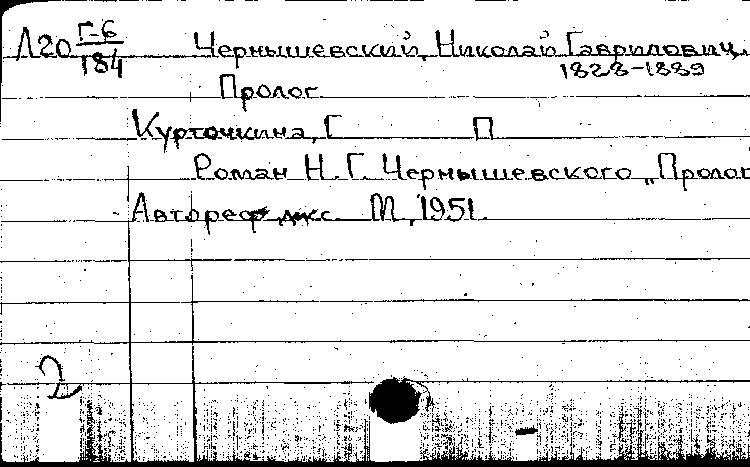 Л20 Г-6/184 Чернышевский, Николай Гаврилович.
1828-1889
Пролог.
Курточкина, Г П
Роман Н.Г. Чернышевского „Пролог
Автореф. дисс. М., 1951.
2